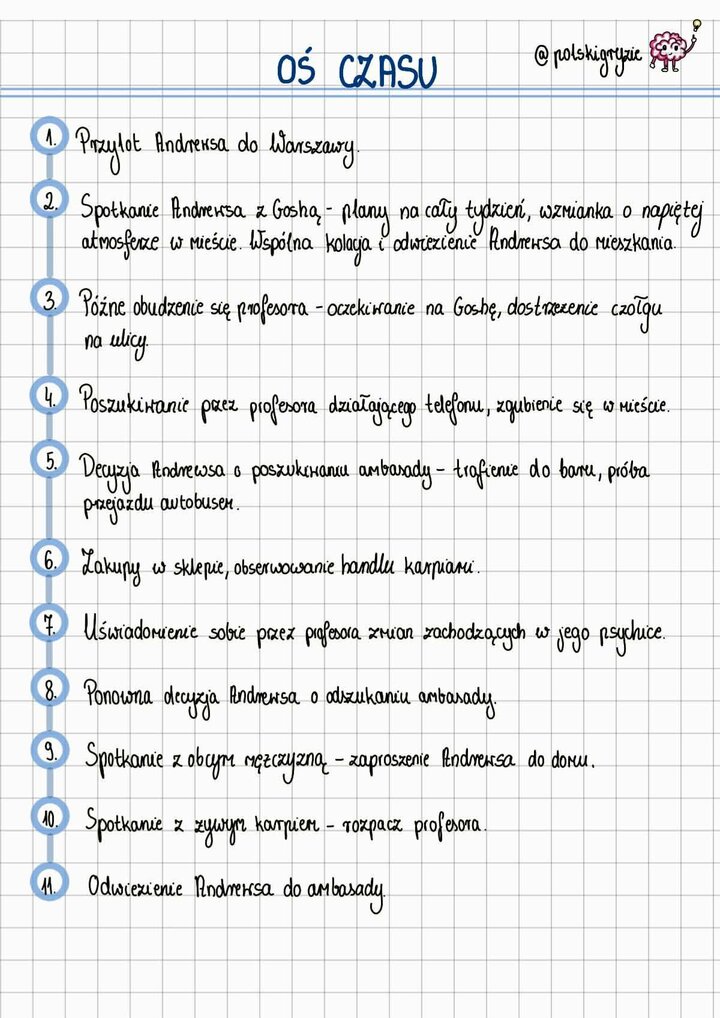 OŚ CZASU
@polskigryzie
1. Przylot Andrewsa do Warszawy.
2. Spotkanie Andrewsa z Goshą - plany na cały tydzień, wzmianka o napiętej
atmosferze w mieście. Wspólna kolacja i odwiezienie Andrewsa do mieszkania.
3. Późne obudzenie się profesora - oczekiwanie na Goshę, dostrzeżenie czołgu
na ulicy.
4. Poszukiwanie przez profesora działającego telefonu, zgubienie się w mieście.
5. Decyzja Andrewsa o poszukiwaniu ambasady - trafienie do baru, próba
przejazdu autobusem.
6. Zakupy w sklepie, obserwowanie handlu karpiami.
7. Uświadomienie sobie przez profesora zmian zachodzących w jego psychice.
8. Ponowna decyzja Andrewsa o odszukaniu ambasady.
9. Spotkanie z obcym mężczyzną - zaproszenie Andrewsa do domu.
10. Spotkanie z żywym karpiem - rozpacz profesora.
11. Odwiezienie Andrewsa do ambasady.